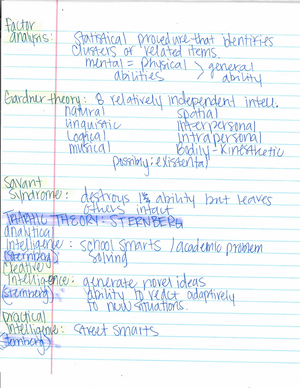 Factor
analysis: Statistical procedure that identifies
clusters of related items.
mental = physical > general
abilities ability
Gardner theory: 8 relatively independent intell.
natural spatial
linguistic interpersonal
Logical intrapersonal
musical Bodily-Kinesthetic
possibly: existental
Savant
Syndrome: destroys 1 ability but leaves
others intact
TRIARCHIC THEORY: STERNBERG
analytical
Intelligence: school smarts / academic problem
(Sternberg) solving
Creative
Intelligence: generate novel ideas
(Sternberg) ability to react adaptively
to new situations.
practical
Intelligence: street smarts
Sternberg)